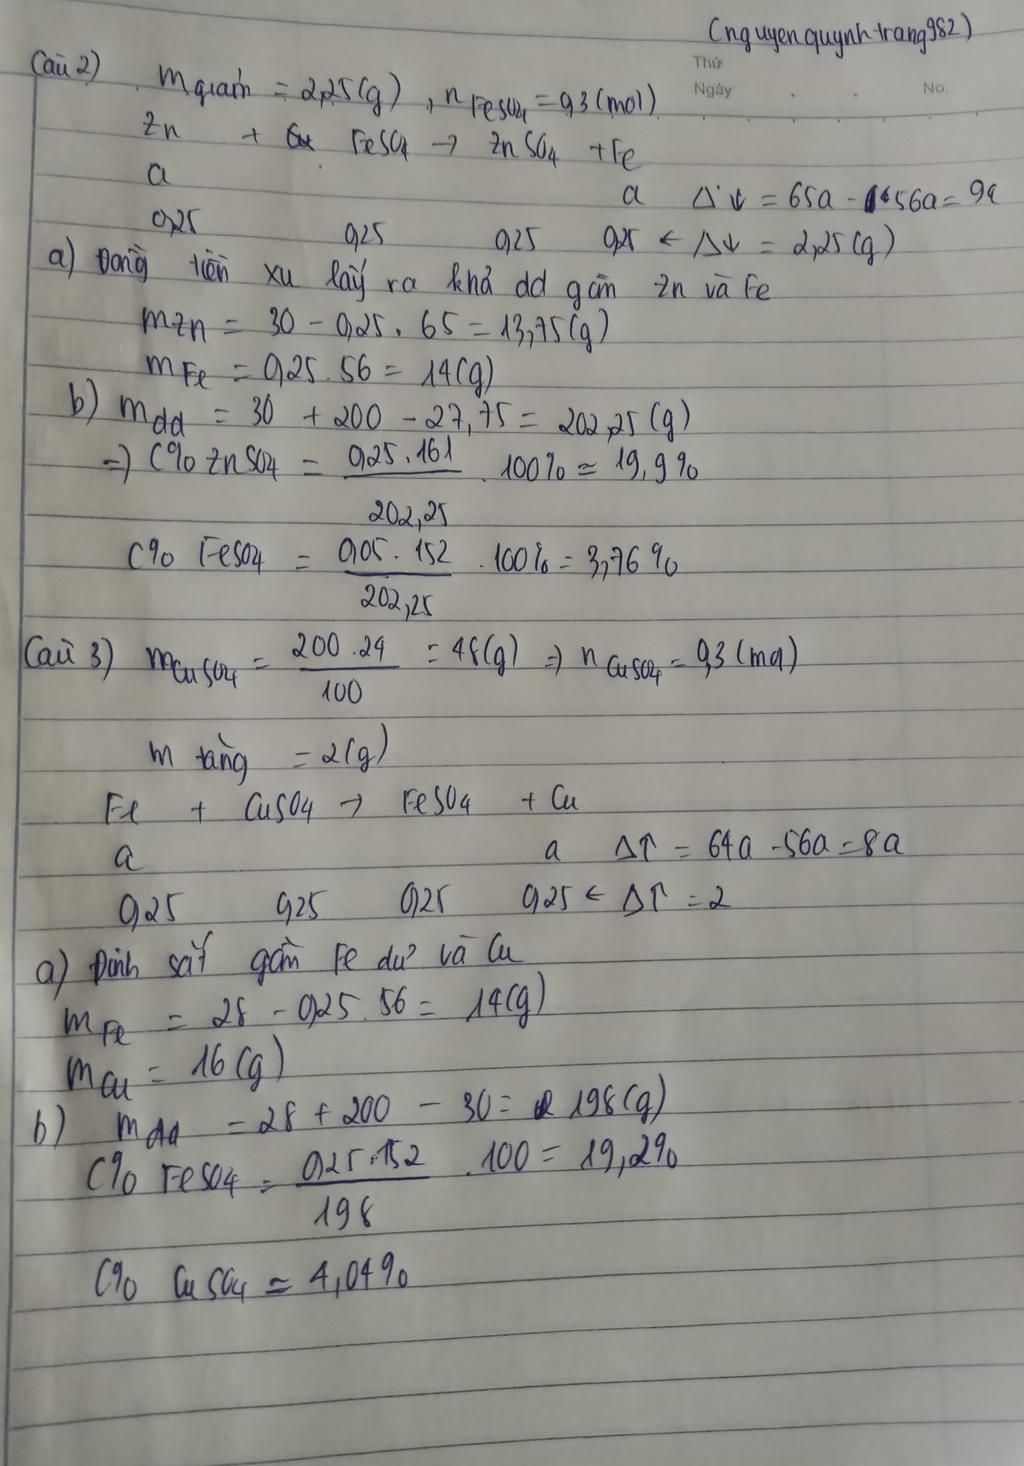 (nguyenquynhtrang982)
Thứ
Ngày . . No.
Câu 2) m giảm = 2,25(g), nFeSO4 = 0,3 (mol)
Zn + FeSO4 → ZnSO4 + Fe
a a Δ↓ = 65a - 56a = 9a
0,25 0,25 0,25 0,25 ← Δ↓ = 2,25(g)
a) Đồng tiền xu lấy ra khả dd gồm Zn và Fe
mZn = 30 - 0,25.65 = 13,75(g)
mFe = 0,25.56 = 14(g)
b) mdd = 30 + 200 - 27,75 = 202,25(g)
=) C% ZnSO4 = 0,25.161 / 202,25 . 100% = 19,9%
C% FeSO4 = 0,05.152 / 202,25 . 100% = 3,76%
Câu 3) mCuSO4 = 200.24 / 100 = 48(g) =) nCuSO4 = 0,3 (mol)
m tăng = 2(g)
Fe + CuSO4 → FeSO4 + Cu
a a Δ↑ = 64a - 56a = 8a
0,25 0,25 0,25 0,25 ← Δ↑ = 2
a) Đinh sắt gồm Fe dư và Cu
mFe = 28 - 0,25.56 = 14(g)
mCu = 16(g)
b) mdd = 28 + 200 - 30 = 198(g)
C% FeSO4 = 0,25.152 / 198 . 100 = 19,2%
C% CuSO4 = 4,04%